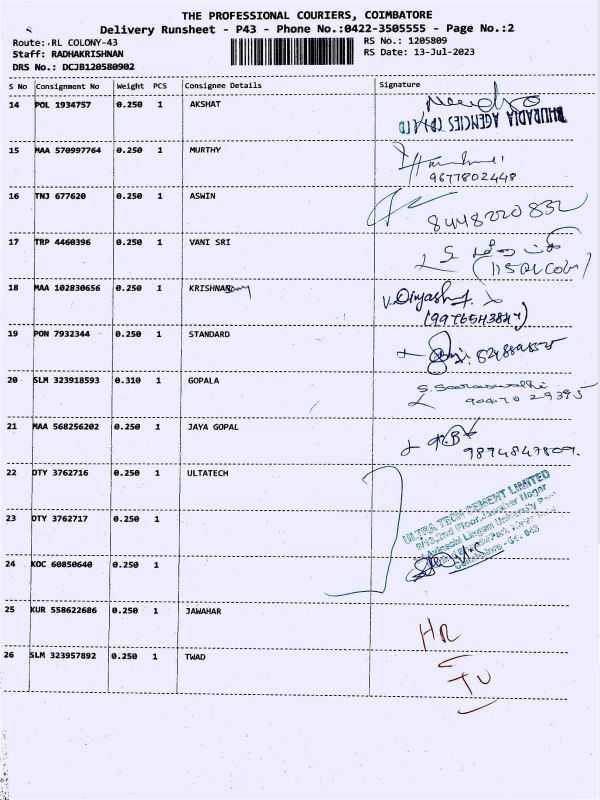 THE PROFESSIONAL COURIERS, COIMBATORE
Delivery Runsheet - P43 - Phone No.:0422-3505555 - Page No.:2
Route: RL COLONY-43 RS No.: 1205809
Staff: RADHAKRISHNAN RS Date: 13-Jul-2023
DRS No.: DCJB120580902
S No Consignment No Weight PCS Consignee Details Signature
14 POL 1934757 0.250 1 AKSHAT
BHURADIA AGENCIES (P) LTD
15 MAA 570997764 0.250 1 MURTHY
9677802448
16 TNJ 677620 0.250 1 ASWIN
8448220832
17 TRP 4460396 0.250 1 VANI SRI
18 MAA 102830656 0.250 1 KRISHNAN
(9976543847)
19 PON 7932344 0.250 1 STANDARD
20 SLM 323918593 0.310 1 GOPALA
S. Saraswathi
90470 29395
21 MAA 568256202 0.250 1 JAYA GOPAL
9894847809.
22 OTY 3762716 0.250 1 ULTATECH
ULTRA TECH CEMENT LIMITED
23 OTY 3762717 0.250 1
24 KOC 60850640 0.250 1
25 KUR 558622686 0.250 1 JAWAHAR
HR
26 SLM 323957892 0.250 1 TWAD
TV